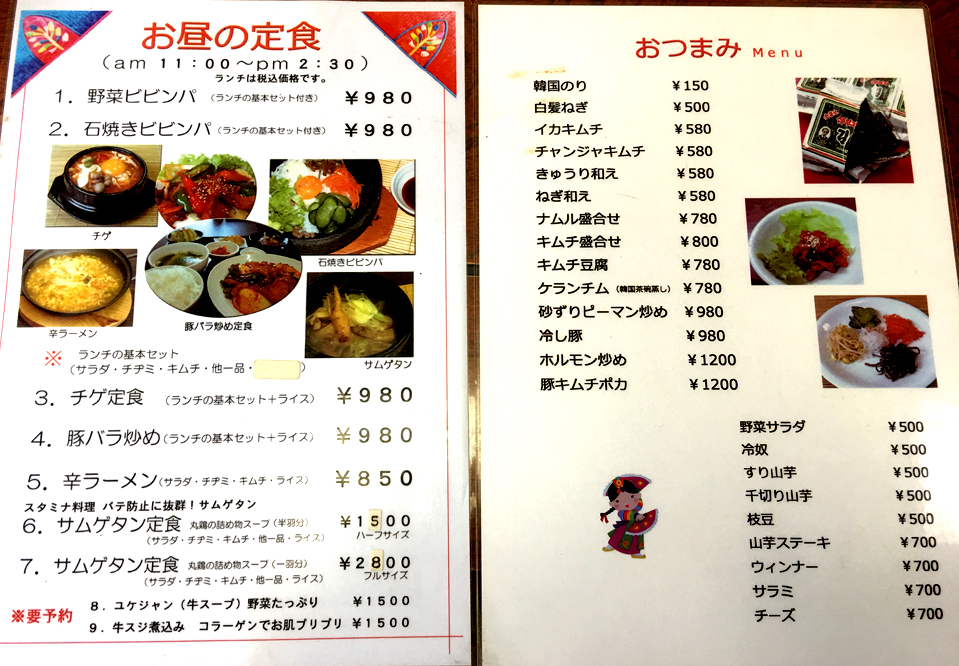 お昼の定食
(am 11:00～pm 2:30)
ランチは税込価格です。
1. 野菜ビビンパ (ランチの基本セット付き) ￥980
2. 石焼きビビンパ (ランチの基本セット付き) ￥980
チゲ
石焼きビビンパ
辛ラーメン
豚バラ炒め定食
サムゲタン
※ ランチの基本セット
(サラダ・チヂミ・キムチ・他一品・ )
3. チゲ定食 (ランチの基本セット＋ライス) ￥980
4. 豚バラ炒め (ランチの基本セット＋ライス) ￥980
5. 辛ラーメン (サラダ・チヂミ・キムチ・ライス) ￥850
スタミナ料理 バテ防止に抜群！サムゲタン
6. サムゲタン定食 丸鶏の詰め物スープ (半羽分) ￥1500
(サラダ・チヂミ・キムチ・他一品・ライス) ハーフサイズ
7. サムゲタン定食 丸鶏の詰め物スープ (一羽分) ￥2800
(サラダ・チヂミ・キムチ・他一品・ライス) フルサイズ
※要予約
8. ユケジャン (牛スープ) 野菜たっぷり ￥1500
9. 牛スジ煮込み コラーゲンでお肌プリプリ ￥1500
おつまみ Menu
韓国のり ￥150
白髪ねぎ ￥500
イカキムチ ￥580
チャンジャキムチ ￥580
きゅうり和え ￥580
ねぎ和え ￥580
ナムル盛合せ ￥780
キムチ盛合せ ￥800
キムチ豆腐 ￥780
ケランチム (韓国茶碗蒸し) ￥780
砂ずりピーマン炒め ￥980
冷し豚 ￥980
ホルモン炒め ￥1200
豚キムチポカ ￥1200
野菜サラダ ￥500
冷奴 ￥500
すり山芋 ￥500
千切り山芋 ￥500
枝豆 ￥500
山芋ステーキ ￥700
ウィンナー ￥700
サラミ ￥700
チーズ ￥700